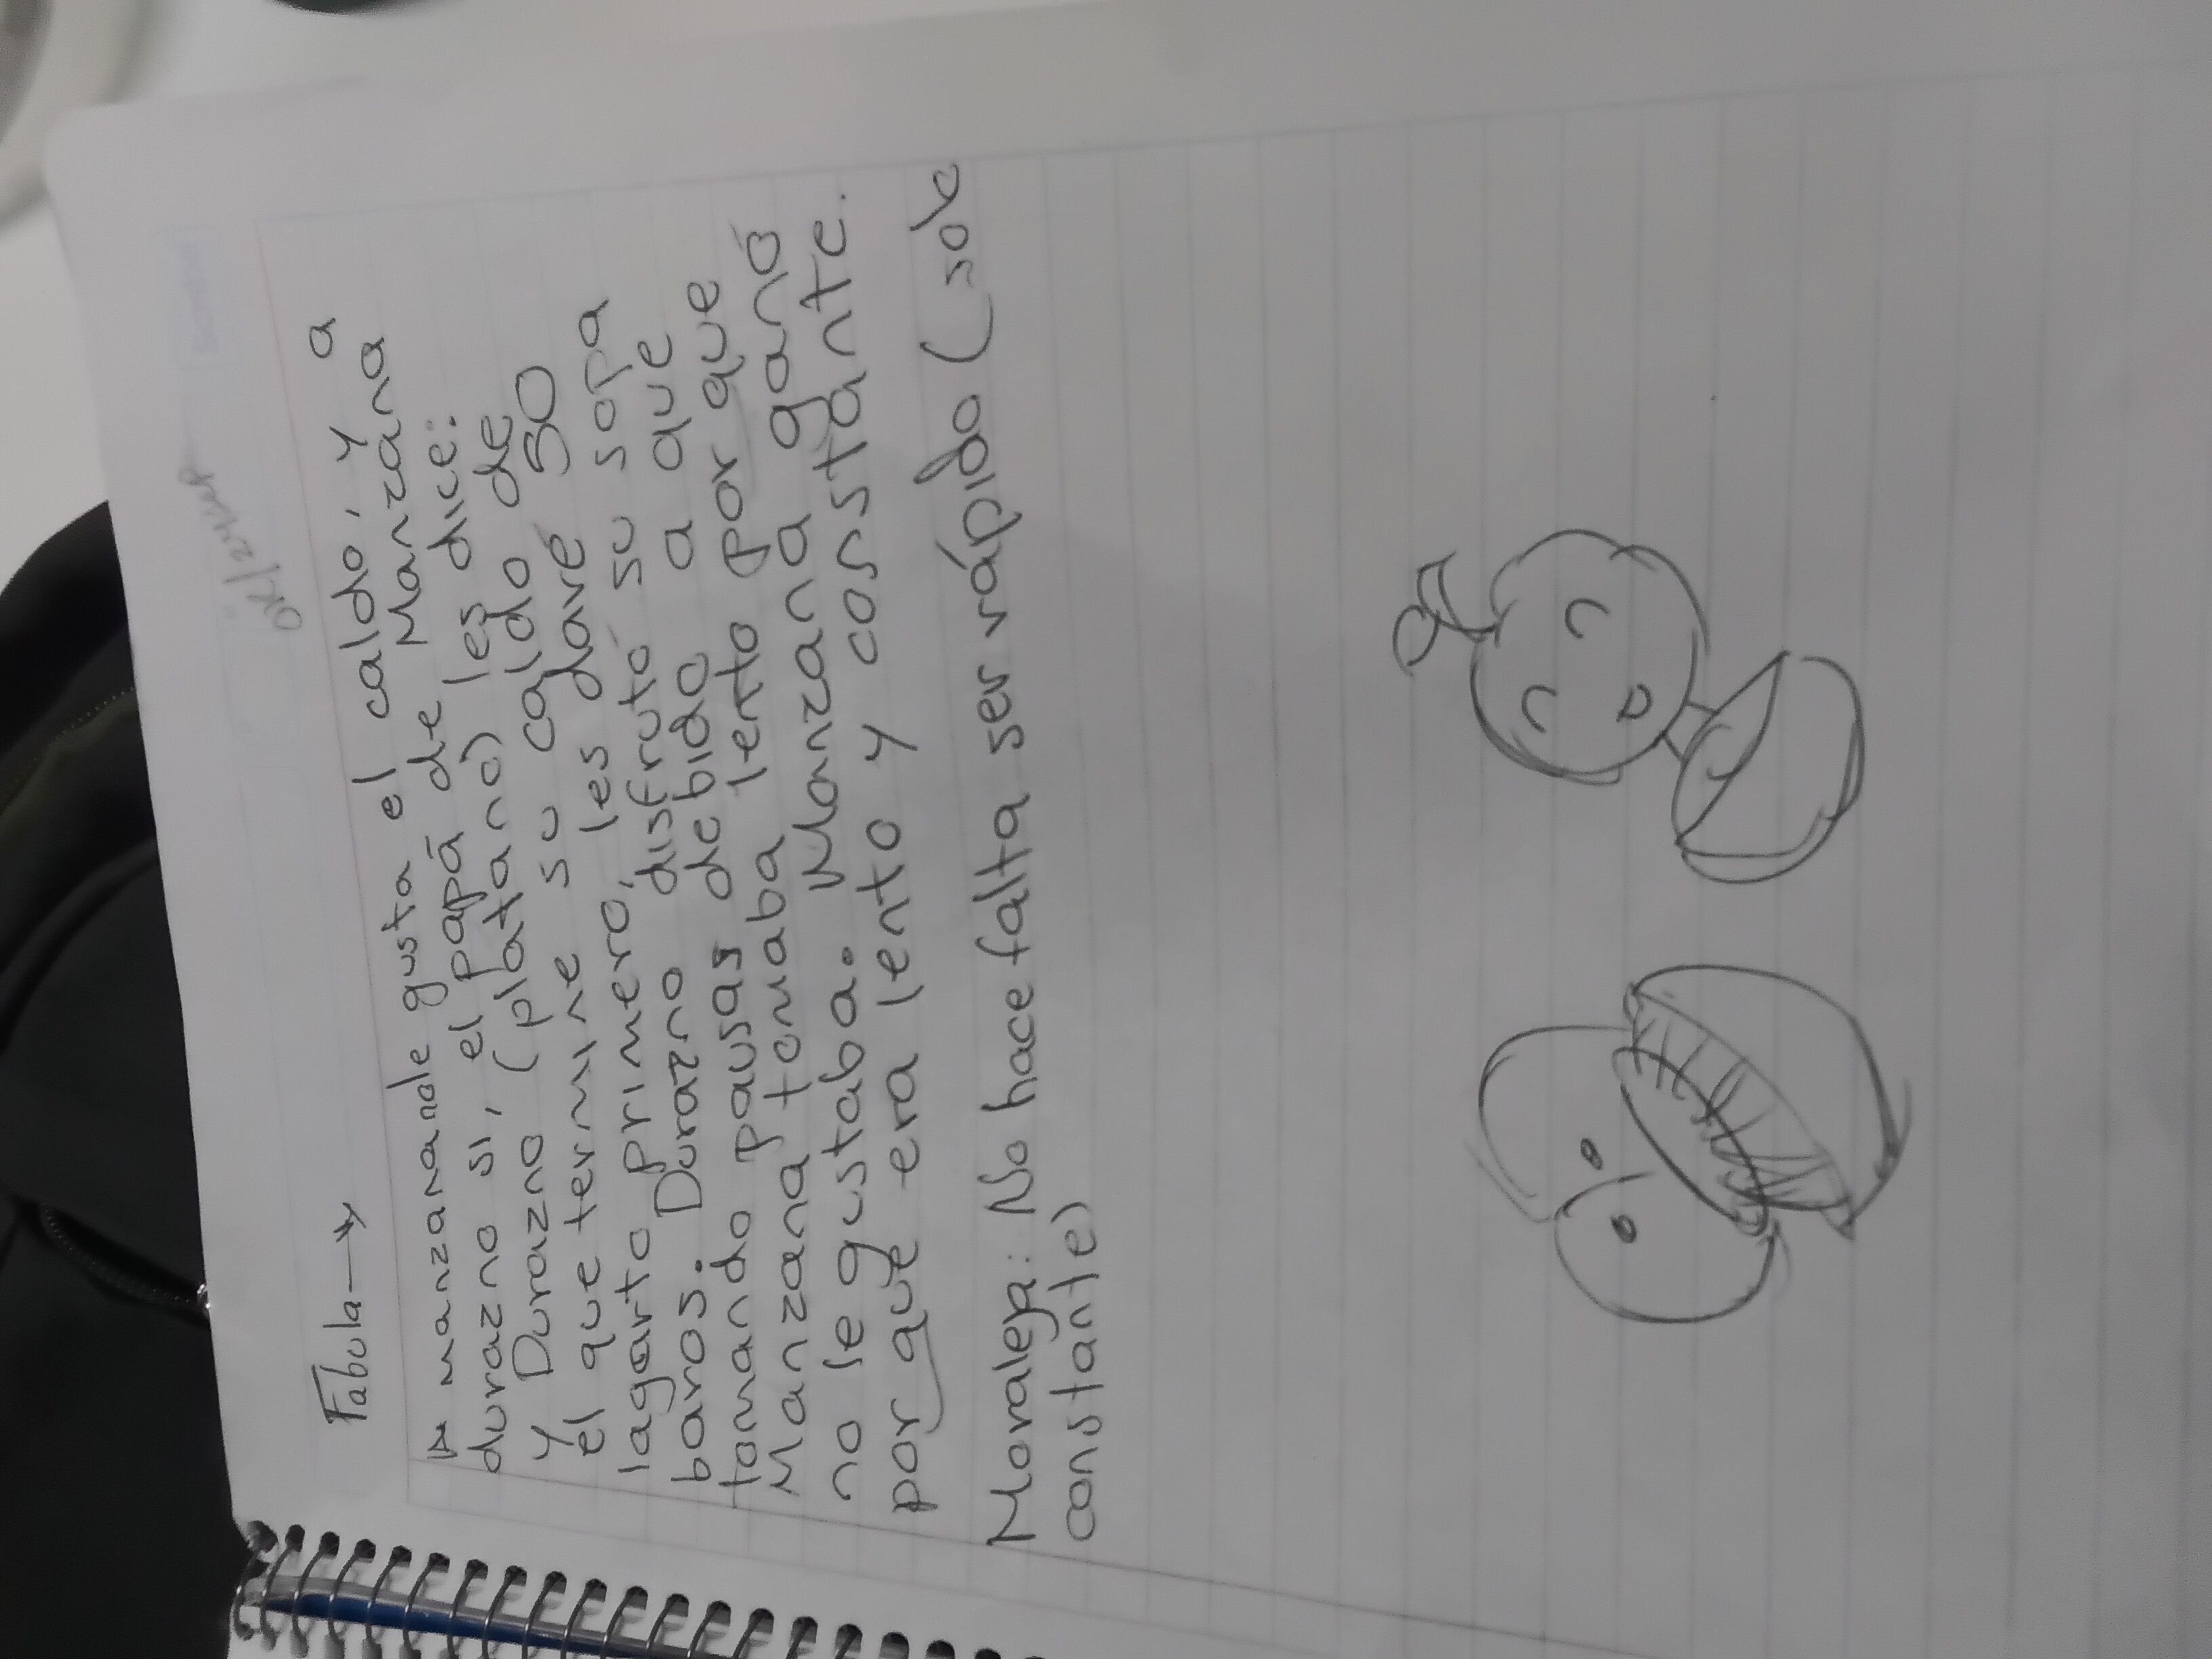 Fabula→
A manzana no le gusta el caldo, y a
durazno si, el papá de Manzana
y Durazno (platano) les dice:
el que termine su caldo de
lagarto primero, les daré 50
baros. Durazno disfrutó su sopa
tomando pausas debido a que
Manzana tomaba lento por que
no le gustaba. Manzana ganó
por que era lento y constante.
Moraleja: No hace falta ser rápido (solo
constante)